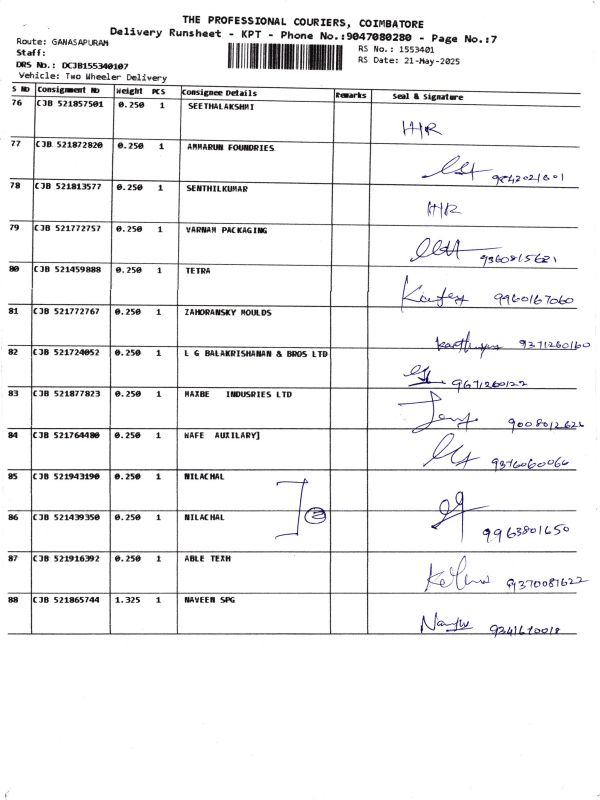 THE PROFESSIONAL COURIERS, COIMBATORE
Delivery Runsheet - KPT - Phone No.:9047080280 - Page No.:7
Route: GANASAPURAM
RS No.: 1553401
Staff:
RS Date: 21-May-2025
DRS No.: DCJB155340107
Vehicle: Two Wheeler Delivery
S No Consignment No Weight PCS Consignee Details Remarks Seal & Signature
76 CJB 521857501 0.250 1 SEETHALAKSHMI
H/R
77 CJB 521872820 0.250 1 AMMARUN FOUNDRIES
78 CJB 521813577 0.250 1 SENTHILKUMAR
H/R
79 CJB 521772757 0.250 1 VARNAM PACKAGING
9360815621
80 CJB 521459888 0.250 1 TETRA
9960167060
81 CJB 521772767 0.250 1 ZAHORANSKY MOULDS
9371260160
82 CJB 521724052 0.250 1 L G BALAKRISHANAN & BROS LTD
9671260122
83 CJB 521877823 0.250 1 MAXBE INDUSRIES LTD
9008012626
84 CJB 521764480 0.250 1 WAFE AUXILARY]
9376060066
85 CJB 521943190 0.250 1 NILACHAL
86 CJB 521439350 0.250 1 NILACHAL
9963801650
87 CJB 521916392 0.250 1 ABLE TEXH
9370081622
88 CJB 521865744 1.325 1 NAVEEN SPG
9341670018